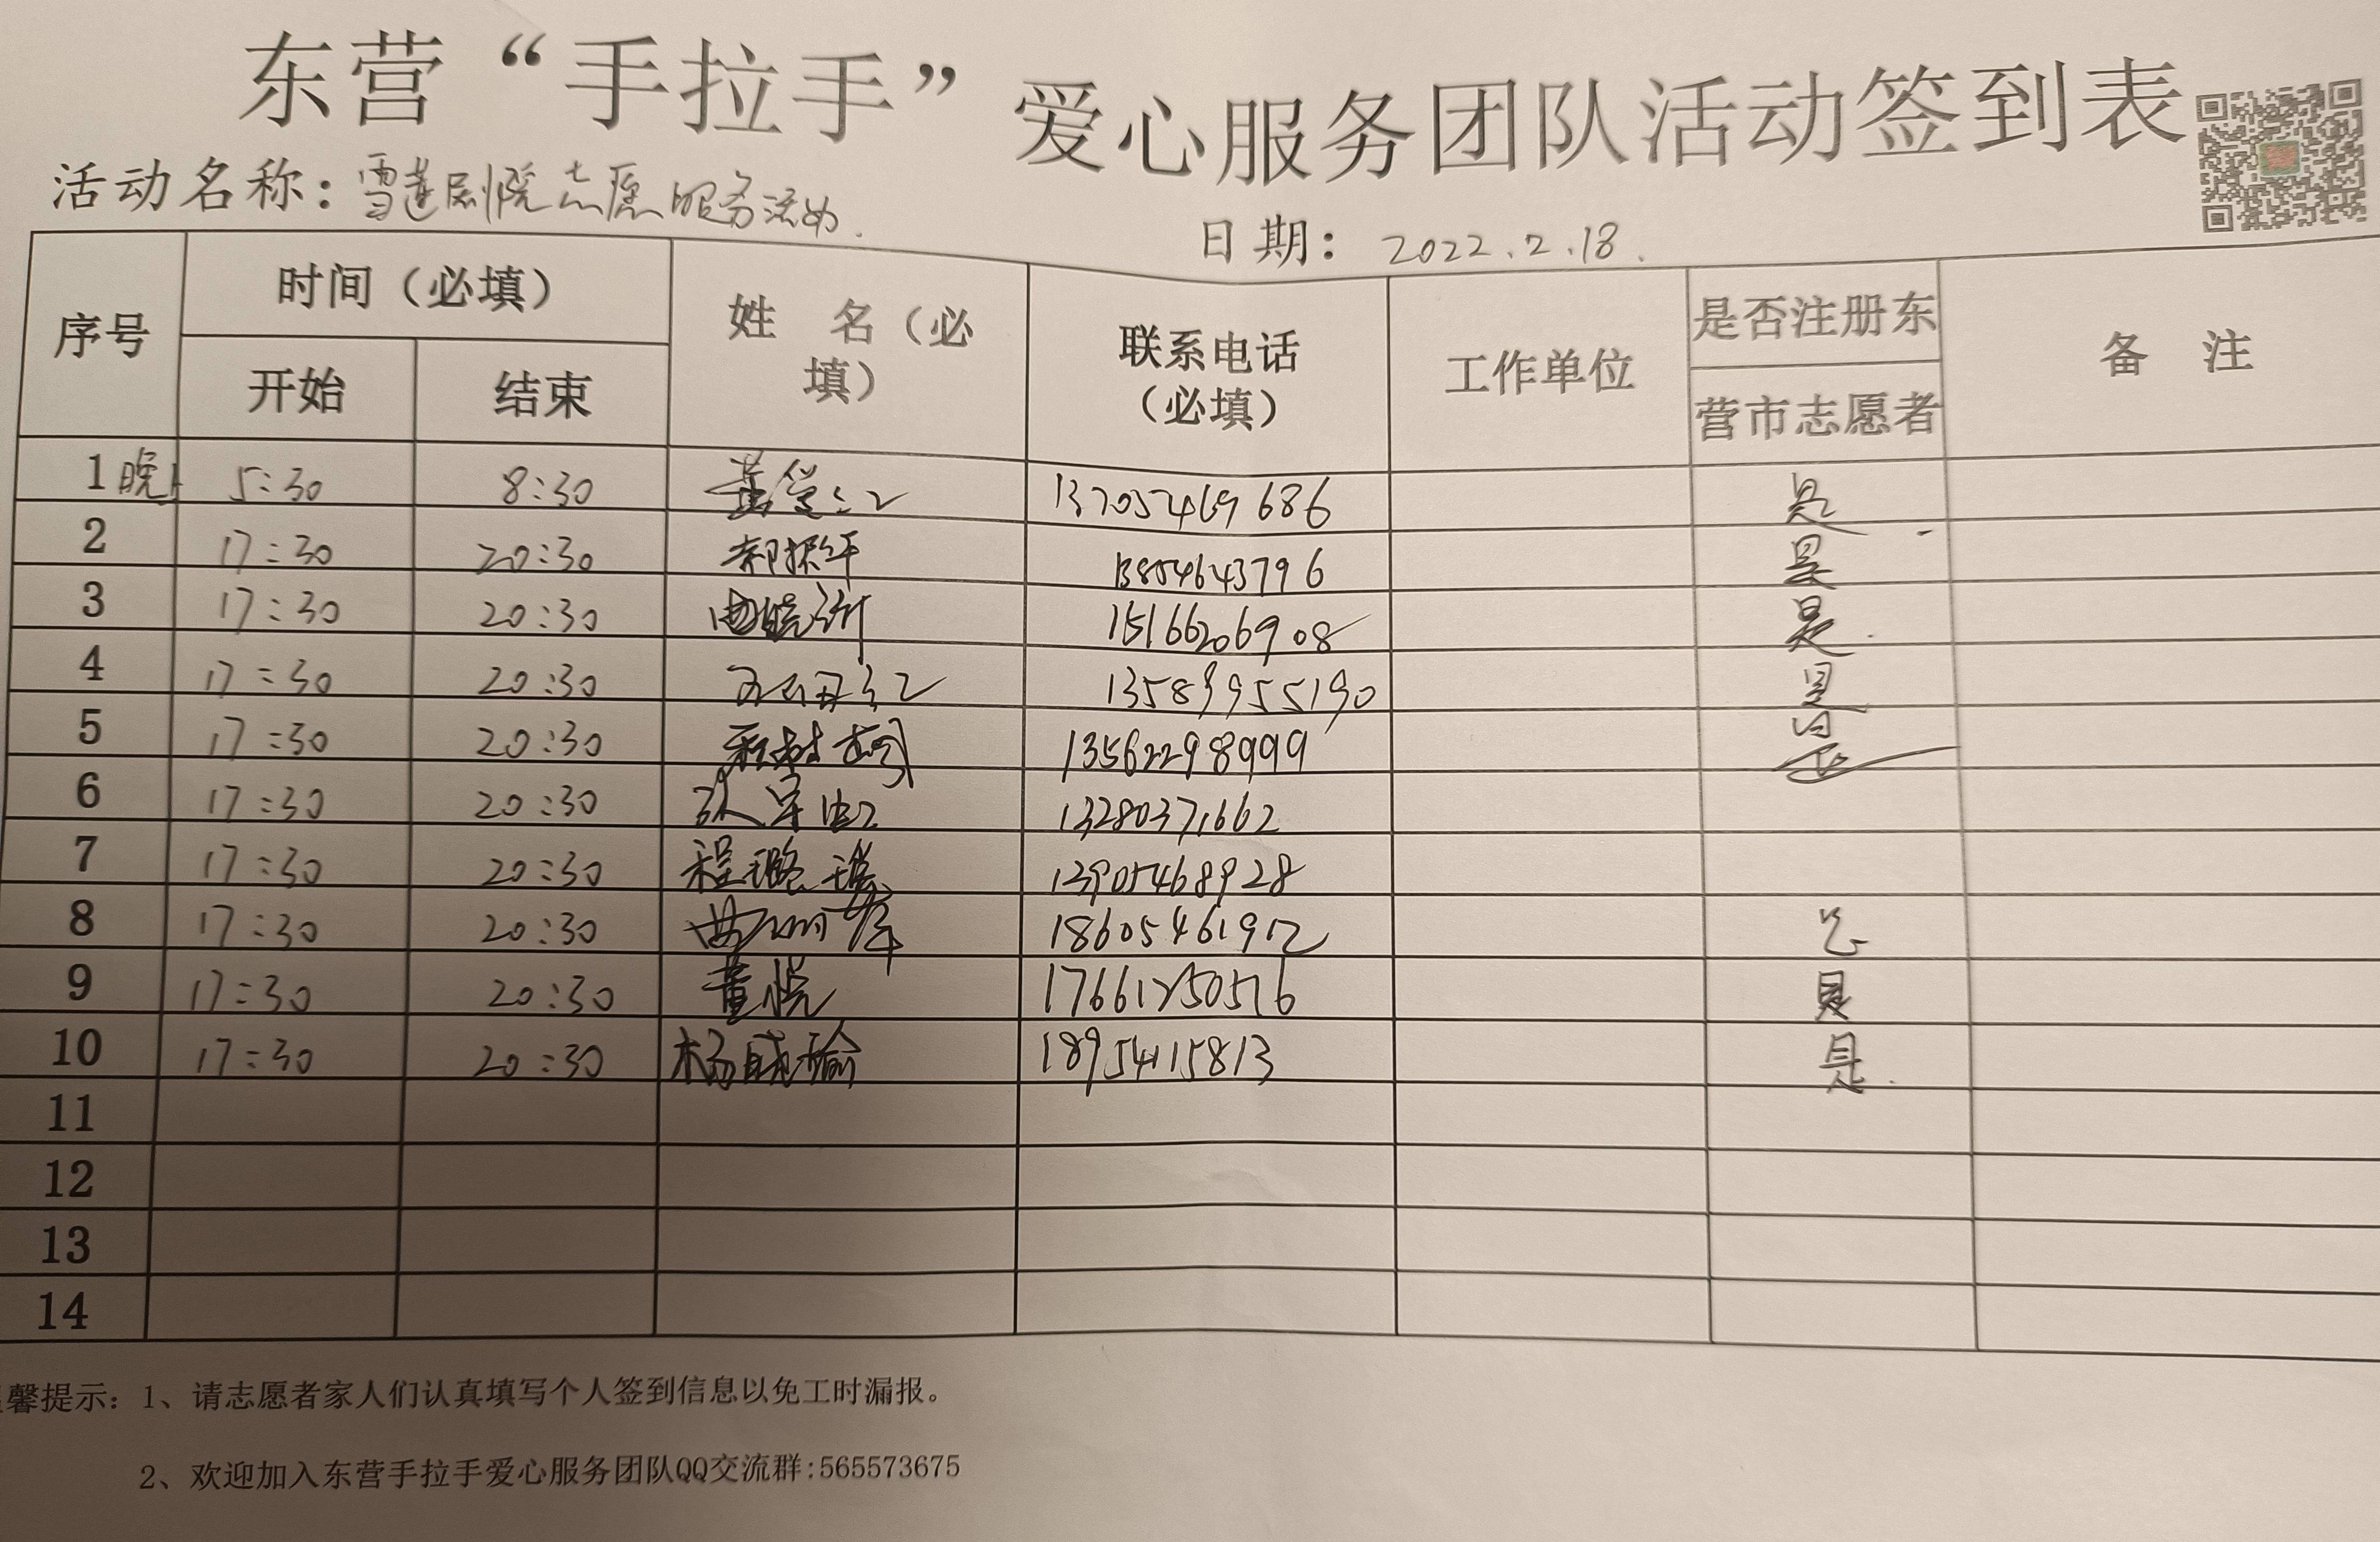 东营“手拉手”爱心服务团队活动签到表
活动名称：雪莲剧院志愿服务活动.
日期：2022.2.18.
序号 时间（必填） 姓 名（必填） 联系电话（必填） 工作单位 是否注册东营市志愿者 备 注
开始 结束
1 晚上 5:30 8:30 13705469686 是
2 17:30 20:30 郝振年 13854643796 是
3 17:30 20:30 15166206908 是
4 17:30 20:30 13589955190 是
5 17:30 20:30 13562298999 是
6 17:30 20:30 13280371662
7 17:30 20:30 程璐瑶 13905468928
8 17:30 20:30 18605461912
9 17:30 20:30 董悦 17661250516 是
10 17:30 20:30 杨晓瑜 18954115813 是
11
12
13
14
馨提示：1、请志愿者家人们认真填写个人签到信息以免工时漏报。
2、欢迎加入东营手拉手爱心服务团队QQ交流群:565573675